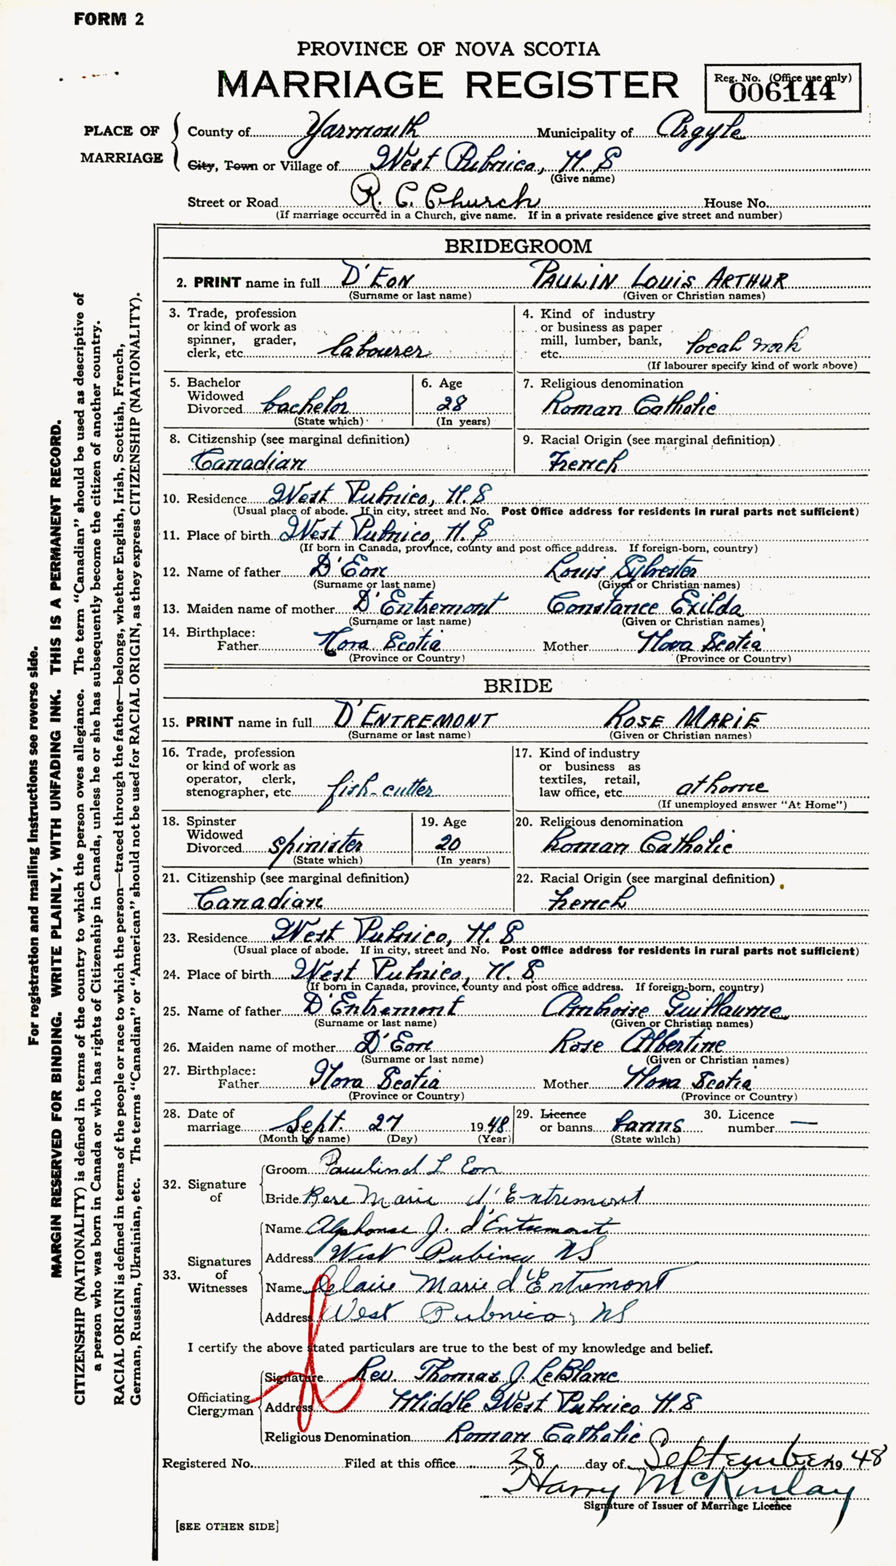 FORM 2
PROVINCE OF NOVA SCOTIA
MARRIAGE REGISTER
Reg. No. (Office use only)
006144
PLACE OF MARRIAGE
County of Yarmouth Municipality of Argyle
City, Town or Village of West Pubnico, N. S
(Give name)
Street or Road R. C. Church House No.
(If marriage occurred in a Church, give name. If in a private residence give street and number)
BRIDEGROOM
2. PRINT name in full D'EON PAULIN LOUIS ARTHUR
(Surname or last name) (Given or Christian names)
3. Trade, profession
or kind of work as
spinner, grader,
clerk, etc. labourer
4. Kind of industry
or business as paper
mill, lumber, bank,
etc. local work
(If labourer specify kind of work above)
5. Bachelor
Widowed
Divorced bachelor
(State which)
6. Age
28
(In years)
7. Religious denomination
Roman Catholic
8. Citizenship (see marginal definition)
Canadian
9. Racial Origin (see marginal definition)
French
10. Residence West Pubnico, N. S
(Usual place of abode. If in city, street and No. Post Office address for residents in rural parts not sufficient)
11. Place of birth West Pubnico, N. S
(If born in Canada, province, county and post office address. If foreign-born, country)
12. Name of father D'Eon Louis Sylvester
(Surname or last name) (Given or Christian names)
13. Maiden name of mother D'Entremont Constance Exilda
(Surname or last name) (Given or Christian names)
14. Birthplace:
Father Nova Scotia Mother Nova Scotia
(Province or Country) (Province or Country)
BRIDE
15. PRINT name in full D'ENTREMONT ROSE MARIE
(Surname or last name) (Given or Christian names)
16. Trade, profession
or kind of work as
operator, clerk,
stenographer, etc. fish-cutter
17. Kind of industry
or business as
textiles, retail,
law office, etc. at home
(If unemployed answer "At Home")
18. Spinster
Widowed
Divorced spinister
(State which)
19. Age
20
(In years)
20. Religious denomination
Roman Catholic
21. Citizenship (see marginal definition)
Canadian
22. Racial Origin (see marginal definition)
French
23. Residence West Pubnico, N. S
(Usual place of abode. If in city, street and No. Post Office address for residents in rural parts not sufficient)
24. Place of birth West Pubnico, N. S
(If born in Canada, province, county and post office address. If foreign-born, country)
25. Name of father D'Entremont Ambroise Guillaume
(Surname or last name) (Given or Christian names)
26. Maiden name of mother D'Eon Rose Albertine
(Surname or last name) (Given or Christian names)
27. Birthplace:
Father Nova Scotia Mother Nova Scotia
(Province or Country) (Province or Country)
28. Date of
marriage Sept. 27 1948
(Month by name) (Day) (Year)
29. Licence
or banns banns
(State which)
30. Licence
number —
32. Signature of
Groom Paulind L Eon
Bride Rose Marie d'Entremont
33. Signatures of Witnesses
Name Alphonse J. d'Entremont
Address West Pubinco NS
Name Claire Marie d'Entremont
Address West Pubnico, NS
I certify the above stated particulars are true to the best of my knowledge and belief.
Officiating Clergyman
Signature Rev. Thomas J. LeBlanc
Address Middle West Pubnico N. S
Religious Denomination Roman Catholic
Registered No. Filed at this office 28 day of September 1948
Harry McKinlay
Signature of Issuer of Marriage Licence
[SEE OTHER SIDE]
For registration and mailing instructions see reverse side.
MARGIN RESERVED FOR BINDING. WRITE PLAINLY, WITH UNFADING INK. THIS IS A PERMANENT RECORD.
CITIZENSHIP (NATIONALITY) is defined in terms of the country to which the person owes allegiance. The term "Canadian" should be used as descriptive of
a person who was born in Canada or who has rights of Citizenship in Canada, unless he or she has subsequently become the citizen of another country.
RACIAL ORIGIN is defined in terms of the people or race to which the person—traced through the father—belongs, whether English, Irish, Scottish, French,
German, Russian, Ukrainian, etc. The terms "Canadian" or "American" should not be used for RACIAL ORIGIN, as they express CITIZENSHIP (NATIONALITY).